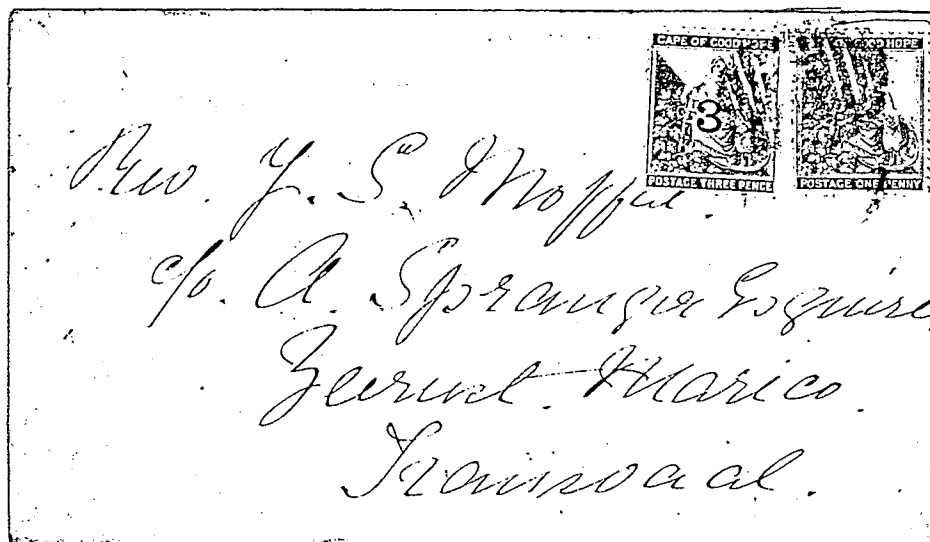 CAPE OF GOOD HOPE
GOOD HOPE
3
POSTAGE THREE PENCE
POSTAGE ONE PENNY
Rev J. S. Moffat.
c/o. A. Spranger Esquire
Zeerust. Marico.
Transvaal.